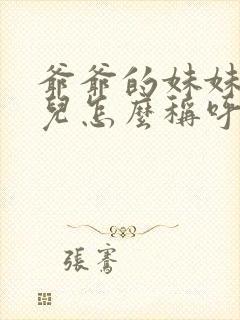 爺爺的妹妹
兒怎麼稱呼
張騫